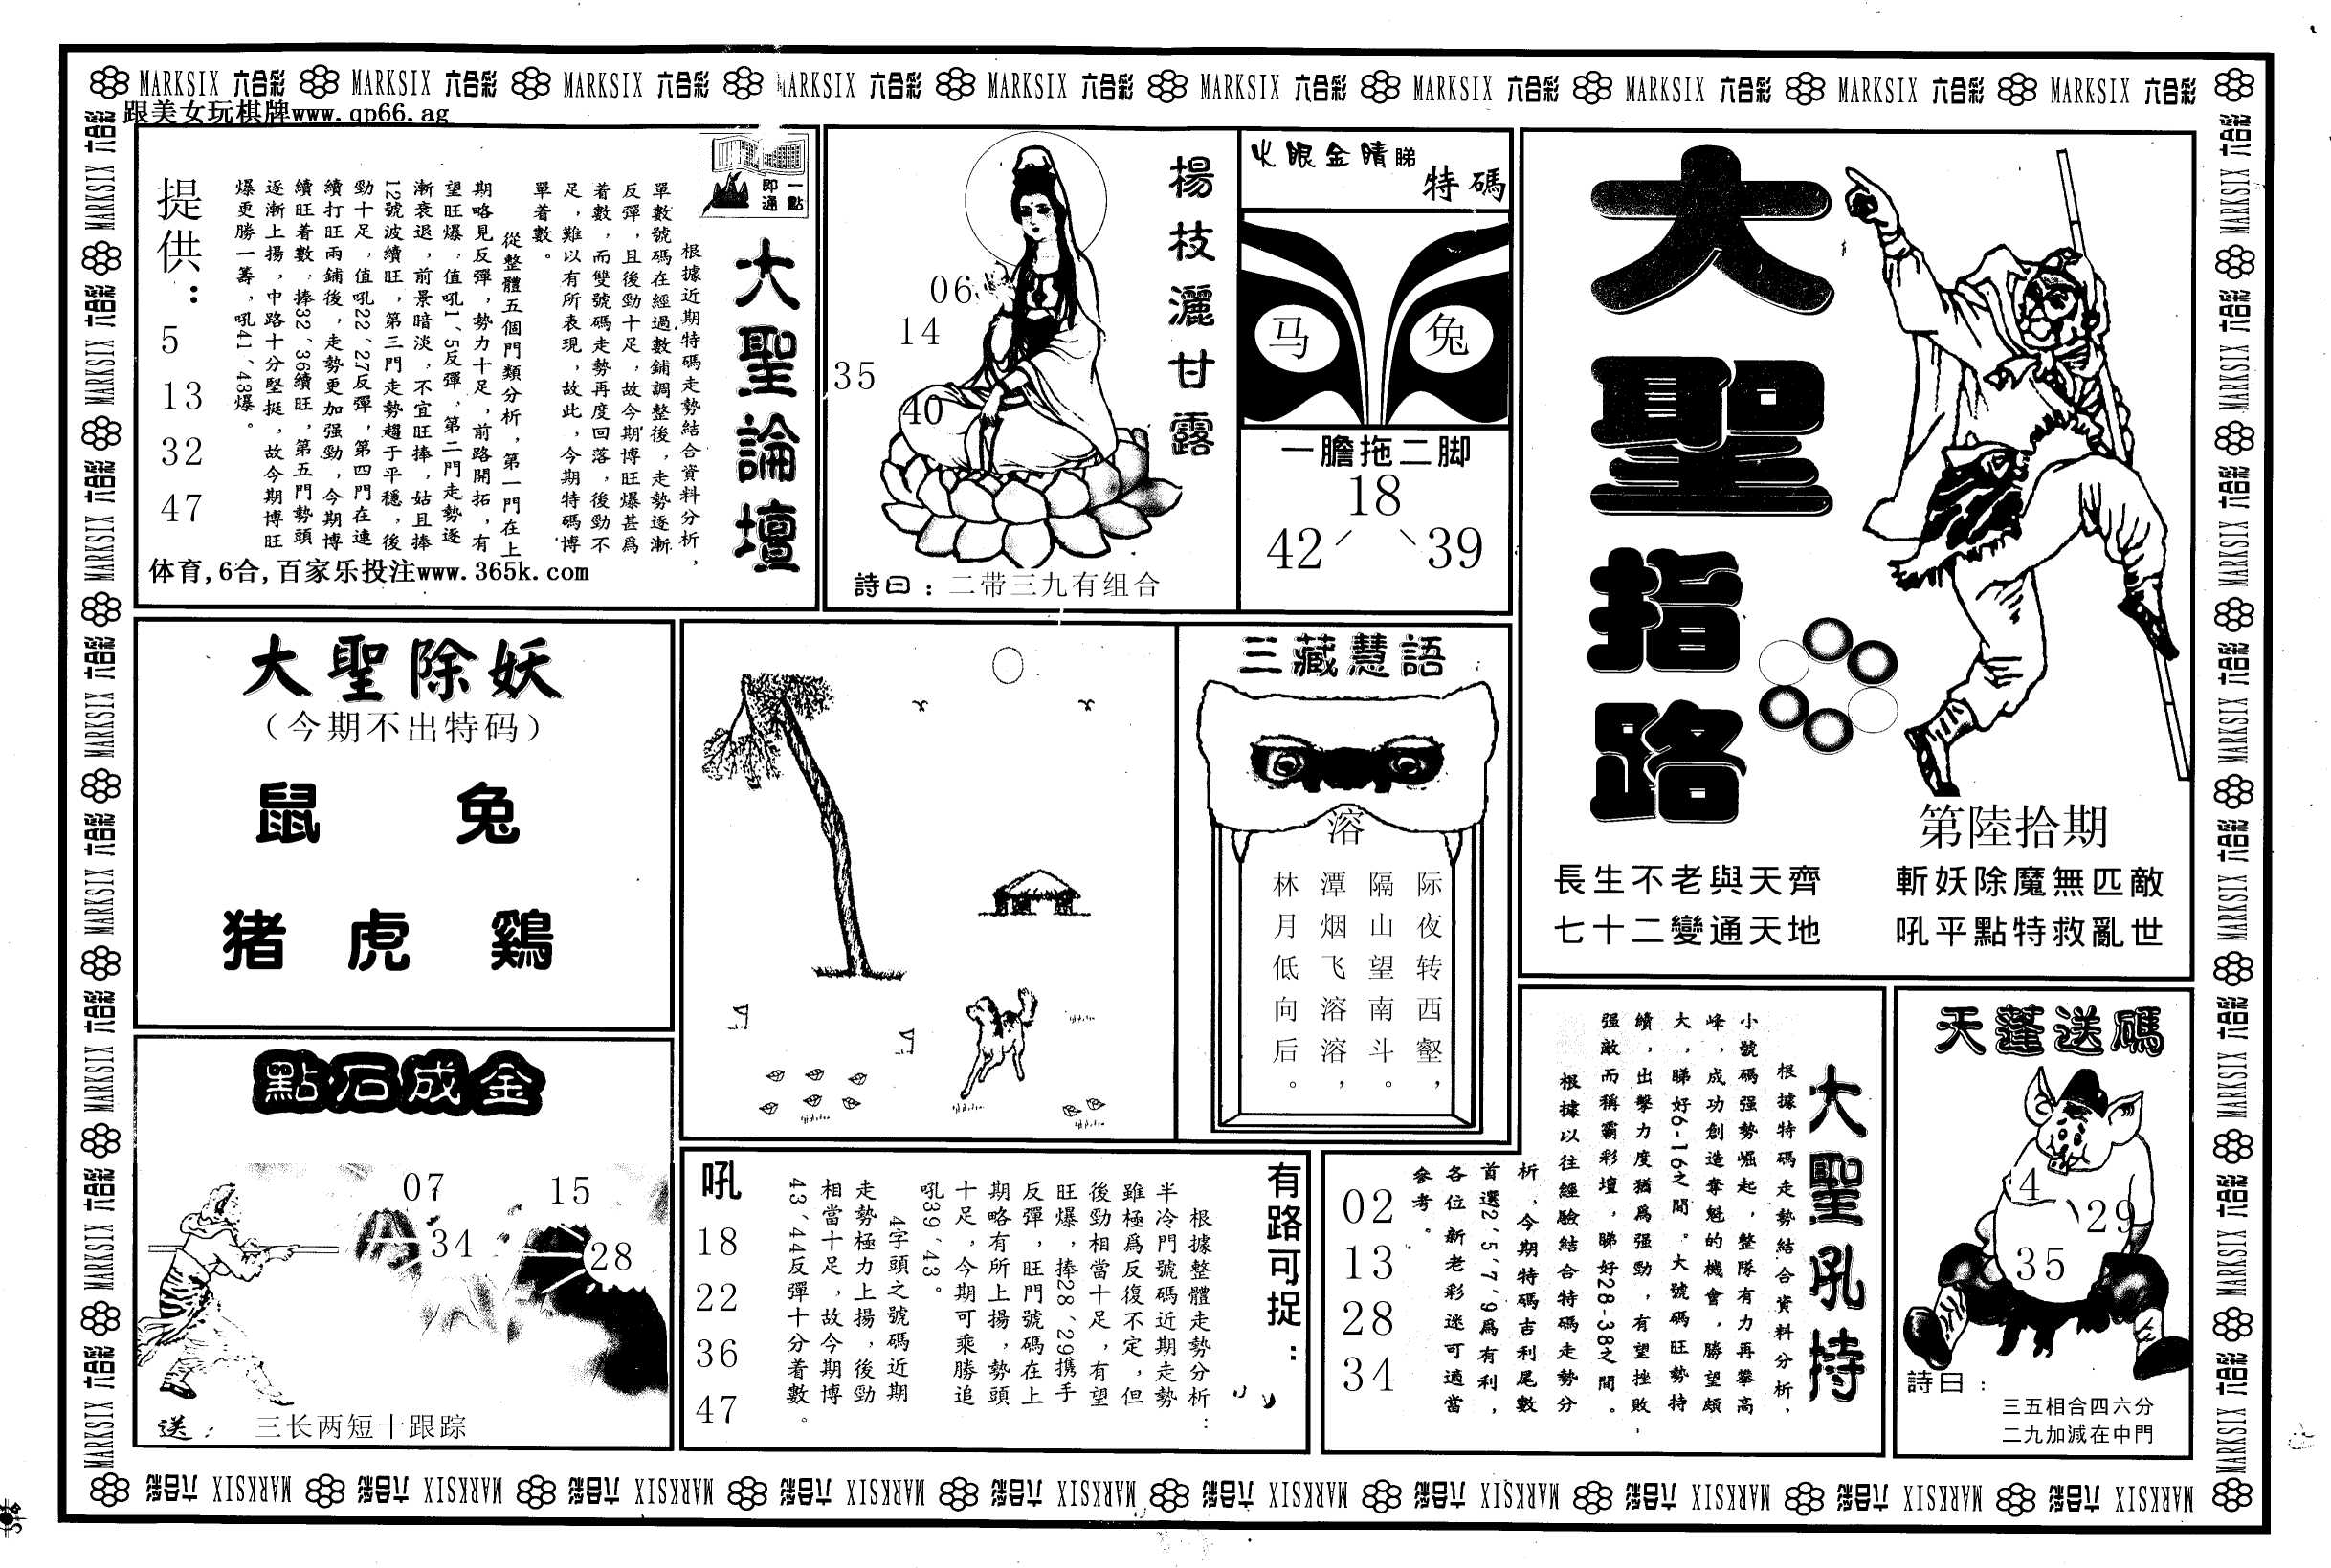 MARKSIX 六合彩 MARKSIX 六合彩 MARKSIX 六合彩 MARKSIX 六合彩 MARKSIX 六合彩 MARKSIX 六合彩 MARKSIX 六合彩 MARKSIX 六合彩 MARKSIX 六合彩 MARKSIX 六合彩
跟美女玩棋牌www.qp66.ag
大聖指路
第陸拾期
長生不老與天齊
七十二變通天地
斬妖除魔無匹敵
吼平點特救亂世
火眼金睛睇
特碼
马 兔
一膽拖二脚
18
42 39
楊枝灑甘露
06
14
35
40
詩曰:二带三九有组合
一點
即通
大聖論壇
根據近期特碼走勢結合資料分析,
單數號碼在經過數鋪調整後,走勢逐漸
反彈,且後勁十足,故今期博旺爆甚爲
着數,而雙號碼走勢再度回落,後勁不
足,難以有所表現,故此,今期特碼博
單着數。
從整體五個門類分析,第一門在上
期略見反彈,勢力十足,前路開拓,有
望旺爆,值吼1、5反彈,第二門走勢逐
漸衰退,前景暗淡,不宜旺捧,姑且捧
12號波續旺,第三門走勢趨于平穩,後
勁十足,值吼22、27反彈,第四門在連
續打旺兩鋪後,走勢更加强勁,今期博
續旺着數,捧32、36續旺,第五門勢頭
逐漸上揚,中路十分堅挺,故今期博旺
爆更勝一籌,吼41、43爆。
提供:
5
13
32
47
体育,6合,百家乐投注www.365k.com
大聖除妖
(今期不出特码)
鼠 兔
猪 虎 鷄
三藏慧語
溶
际夜转西壑,
隔山望南斗。
潭烟飞溶溶,
林月低向后。
點石成金
07
15
34
28
送:三长两短十跟踪
有路可捉:
根據整體走勢分析:
半冷門號碼近期走勢
雖極爲反復不定,但
後勁相當十足,有望
旺爆,捧28、29携手
反彈,旺門號碼在上
期略有所上揚,勢頭
十足,今期可乘勝追
吼39、43。
4字頭之號碼近期
走勢極力上揚,後勁
相當十足,故今期博
43、44反彈十分着數。
吼
18
22
36
47
大聖吼持
根據特碼走勢結合資料分析,
小號碼强勢崛起,整隊有力再攀高
峰,成功創造奪魁的機會,勝望頗
大,睇好6-16之間。大號碼旺勢持
續,出擊力度猶爲强勁,有望挫敗
强敵而稱霸彩壇,睇好28-38之間。
根據以往經驗結合特碼走勢分
析,今期特碼吉利尾數
首選2、5、7、9爲有利,
各位新老彩迷可適當
參考。
02
13
28
34
天蓬送碼
4
29
35
詩曰:
三五相合四六分
二九加減在中門
MARKSIX 六合彩 MARKSIX 六合彩 MARKSIX 六合彩 MARKSIX 六合彩 MARKSIX 六合彩 MARKSIX 六合彩 MARKSIX 六合彩 MARKSIX 六合彩 MARKSIX 六合彩 MARKSIX 六合彩